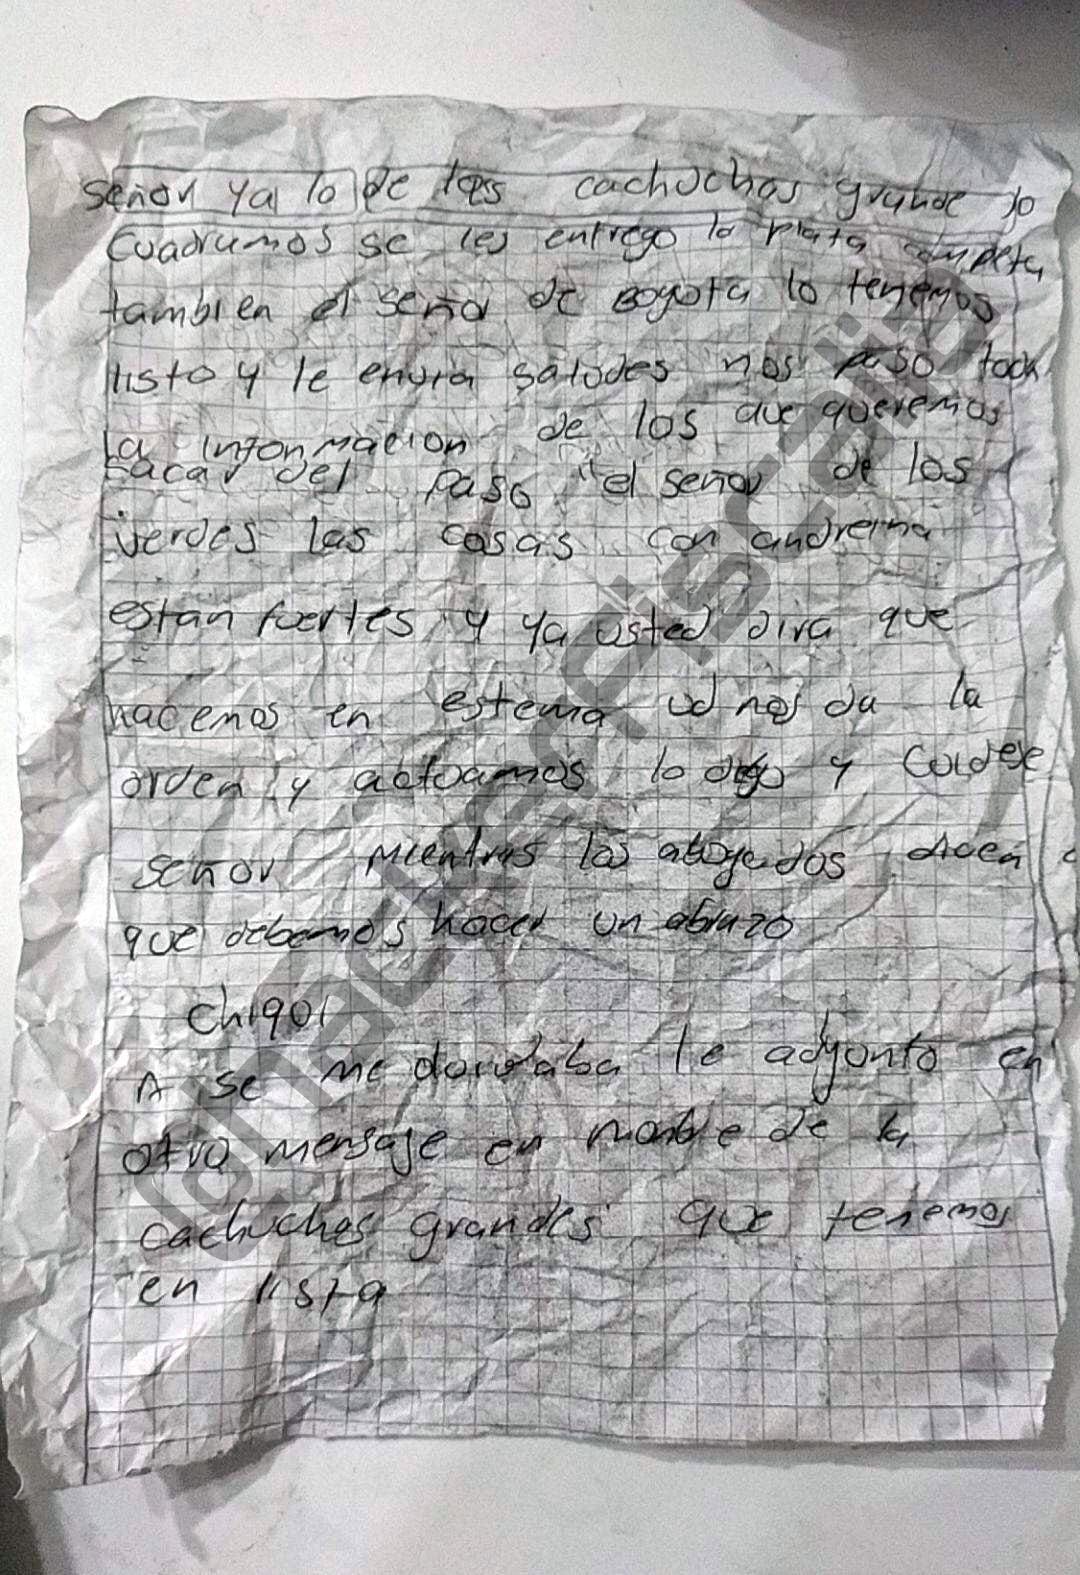 señor ya lo de los cachuchas grande lo
cuadramos se les entrego la plata completa
tambien el señor de Bogota lo tenemos
listo y le envia saludes nos paso toda
la informacion de los que queremos
sacar del paso "el señor de los
verdes las cosas con andreina
estan fuertes y ya usted dira que
hacemos en estema ud nos da la
orden y actuamos lo digo y cuidese
señor mientras los abogados dicen
que debemos hacer un abrazo
chiqui
A se me dovidaba le adjunto en
otro mensaje en nombre de la
cachuchas grandes que tenemos
en lista
@hackerfiscalia